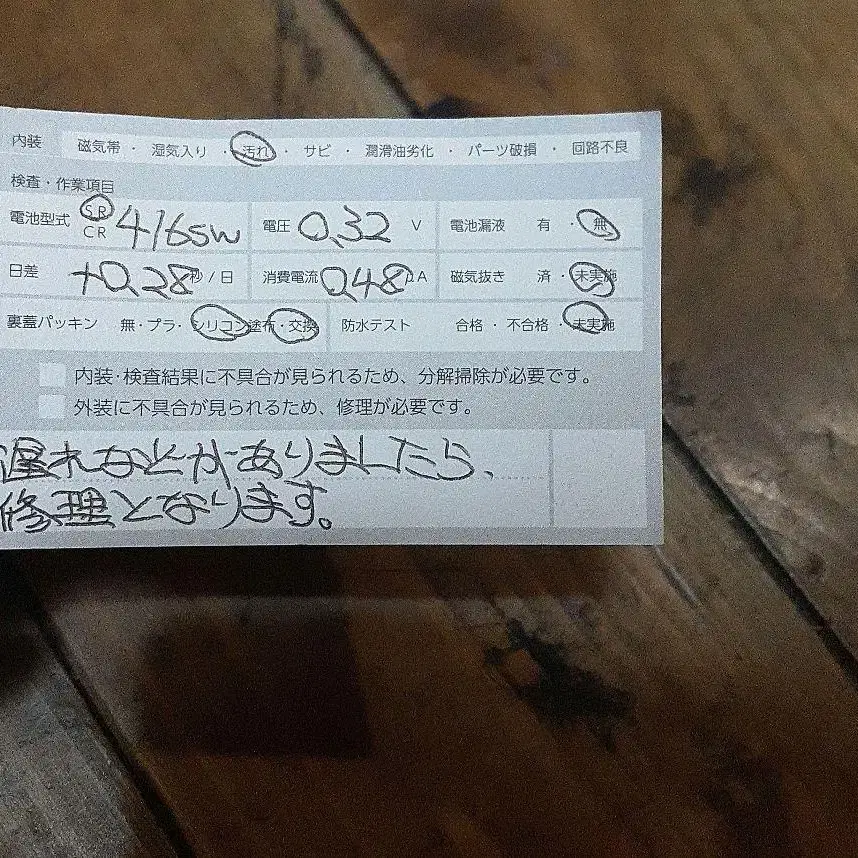 内装 磁気帯・湿気入り・汚れ・サビ・潤滑油劣化・パーツ破損・回路不良
検査・作業項目
電池型式 SR CR 416SW 電圧 0.32 V 電池漏液 有・無
日差 +0.28 秒/日 消費電流 0.48 μA 磁気抜き 済・未実施
裏蓋パッキン 無・プラ・シリコン塗布・交換 防水テスト 合格・不合格・未実施
内装・検査結果に不具合が見られるため、分解掃除が必要です。
外装に不具合が見られるため、修理が必要です。
遅れなどがありましたら、
修理となります。